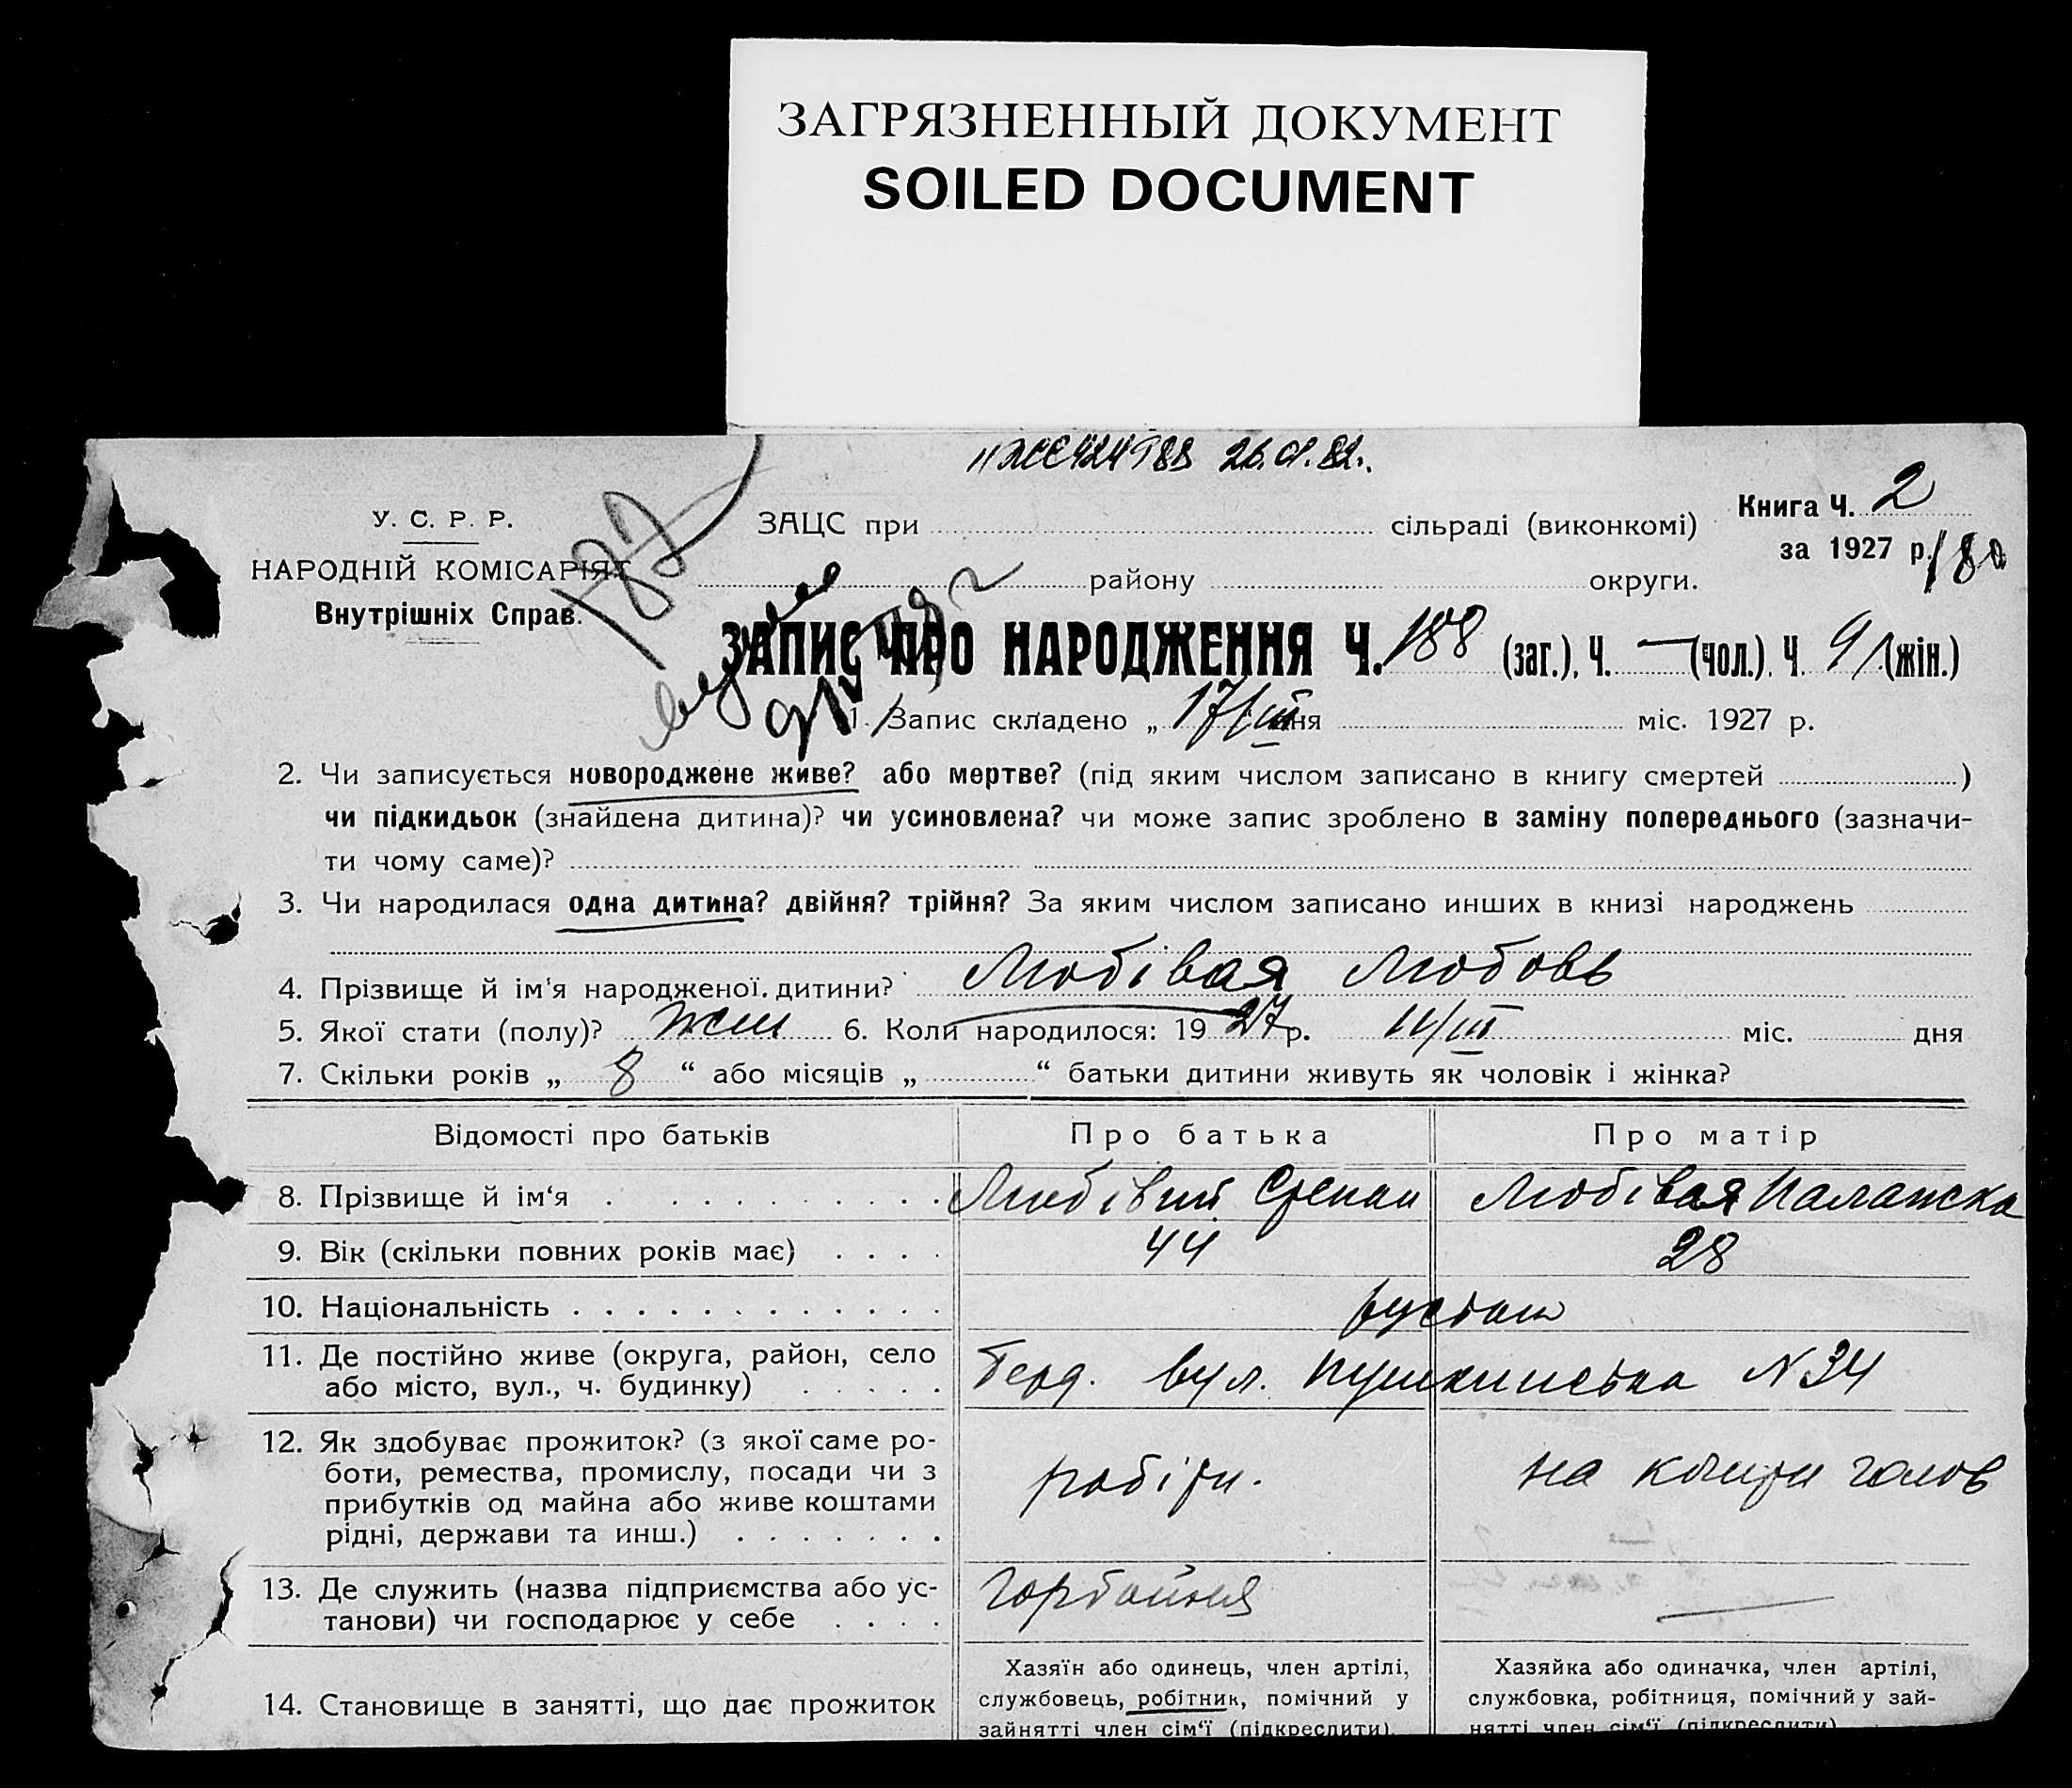 ЗАГРЯЗНЕННЫЙ ДОКУМЕНТ
SOILED DOCUMENT
26.01.82.
187
У. С. Р. Р.
НАРОДНІЙ КОМІСАРІЯТ
Внутрішніх Справ.
ЗАЦС при сільраді (виконкомі)
району округи.
Книга Ч. 2
за 1927 р.
180
ЗАПИС ПРО НАРОДЖЕННЯ Ч. 188 (заг.), Ч. — (чол.). Ч. 91 (жін.)
1. Запис складено „ 17/III дня міс. 1927 р.
2. Чи записується новороджене живе? або мертве? (під яким числом записано в книгу смертей )
чи підкидьок (знайдена дитина)? чи усиновлена? чи може запис зроблено в заміну попереднього (зазначи-
ти чому саме)?
3. Чи народилася одна дитина? двійня? трійня? За яким числом записано инших в книзі народжень
4. Прізвище й ім'я народженої дитини? Любівая Любовь
5. Якої стати (полу)? жін 6. Коли народилося: 19 27 р. 11/III міс. дня
7. Скільки років „ 8 “ або місяців „ “ батьки дитини живуть як чоловік і жінка?
Відомості про батьків Про батька Про матір
8. Прізвище й ім'я Любівий Степан Любівая Палажка
9. Вік (скільки повних років має) 44 28
10. Національність
11. Де постійно живе (округа, район, село
або місто, вул., ч. будинку) Берд. вул. Пушкинська N 34
12. Як здобуває прожиток? (з якої саме ро-
боти, ремества, промислу, посади чи з
прибутків од майна або живе коштами
рідні, держави та инш.) робітн. на кошти голов
13. Де служить (назва підприємства або ус-
танови) чи господарює у себе —
14. Становище в занятті, що дає прожиток
Хазяїн або одинець, член артілі,
службовець, робітник, помічний у
зайнятті член сім'ї (підкреслити).
Хазяйка або одиначка, член артілі,
службовка, робітниця, помічний у зай-
нятті член сім'ї (підкреслити)